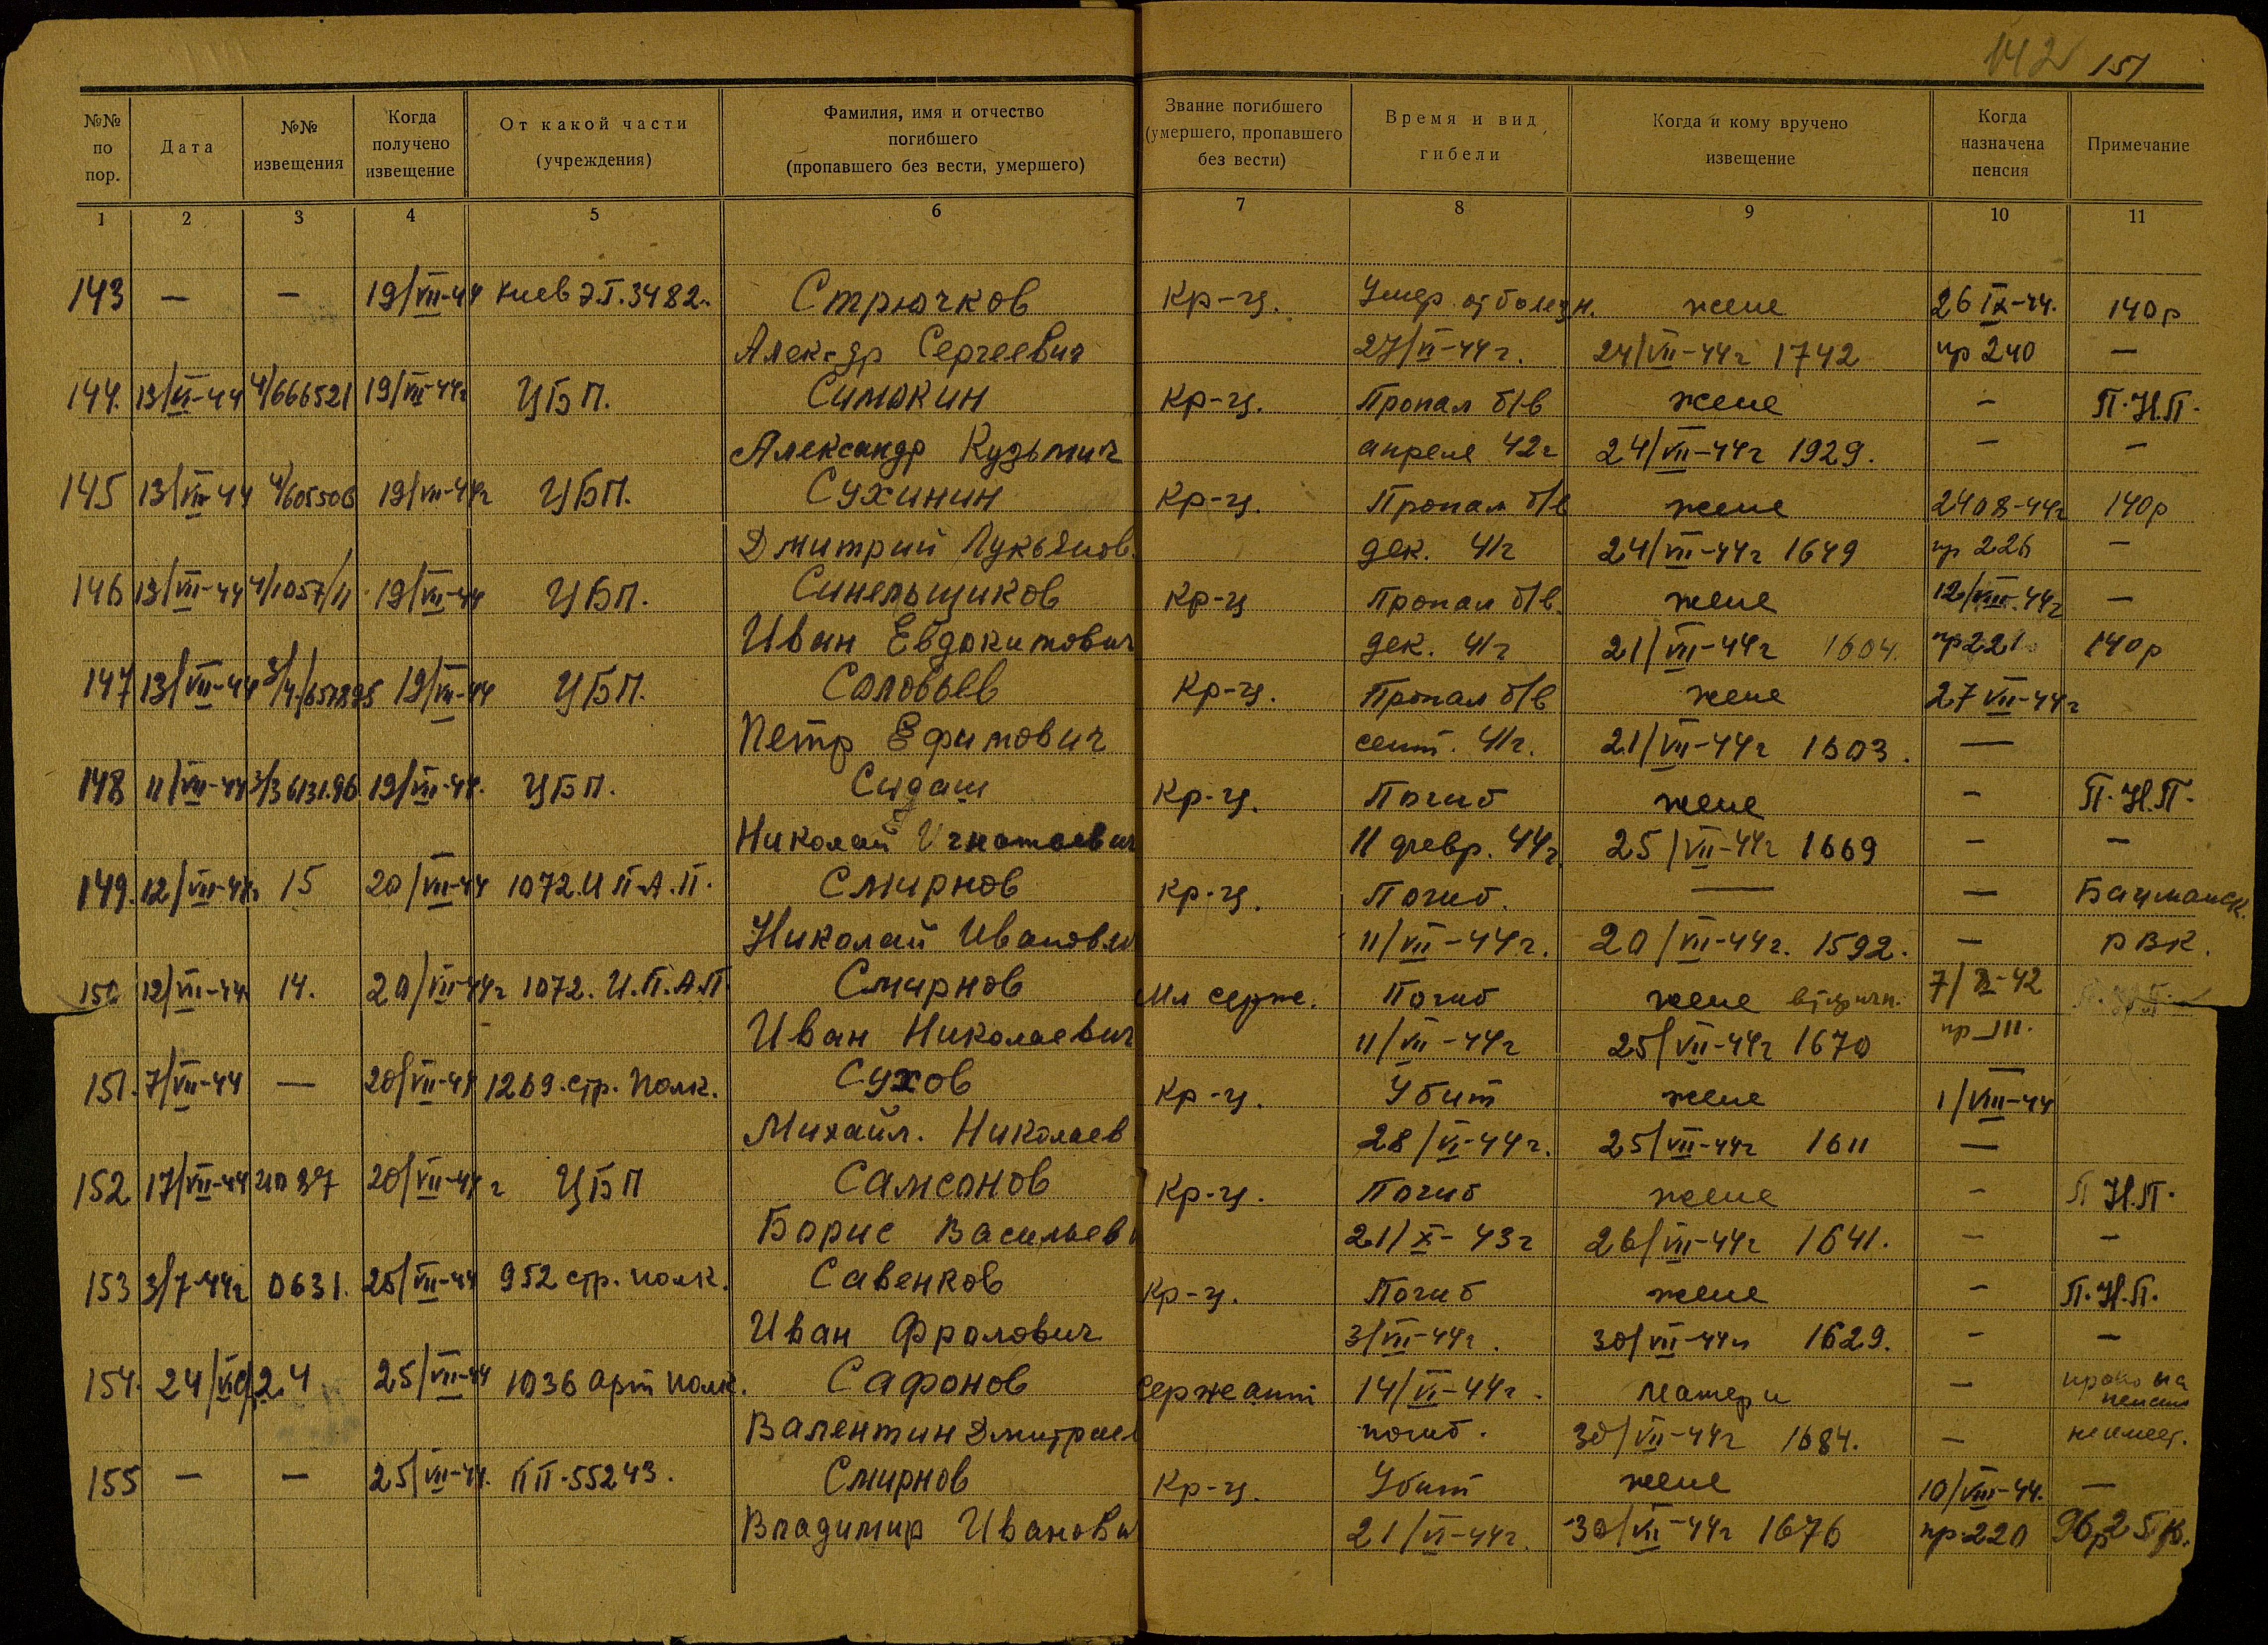 142 151
№№ по пор. Дата №№ извещения Когда получено извещение От какой части (учреждения) Фамилия, имя и отчество погибшего (пропавшего без вести, умершего) Звание погибшего (умершего, пропавшего без вести) Время и вид гибели Когда и кому вручено извещение Когда назначена пенсия Примечание
1 2 3 4 5 6 7 8 9 10 11
143 — — 19/VII-44 Киев Э.Г. 3482. Стрючков Кр-ц. Умер от болезн. жене 26 IX-44. 140р
Алек-др Сергеевич 27/VI-44г. 24/VII-44г 1742 пр 240 —
144. 13/VII-44 4/666521 19/VII-44г ЦБП. Симакин Кр-ц. Пропал б/в жене — П.Н.П.
Александр Кузьмич апреле 42г 24/VII-44г 1929. — —
145 13/VII-44 4/605506 19/VII-44г ЦБП. Сухинин Кр-ц. Пропал б/в жене 2408-44г 140р
Дмитрий Лукьянов. дек. 41г 24/VII-44г 1649 пр 226 —
146 13/VII-44 4/1057/11 19/VII-44 ЦБП. Синельщиков Кр-ц Пропал б/в. жене 12/VIII.44г —
Иван Евдокимович дек. 41г 21/VII-44г 1604. пр 221 140р
147 13/VII-44 19/VII-44 ЦБП. Соловьев Кр-ц. Пропал б/в жене 27 VII-44г
Петр Ефимович сент. 41г. 21/VII-44г 1603. —
148 11/VII-44 3/3613196 19/VII-44. ЦБП. Сидаш Кр-ц. Погиб жене — П.Н.П.
Николай Игнатьевич 11 февр. 44г. 25/VII-44г 1669 — —
149. 12/VII-44г 15 20/VII-44 1072 И П.А.П. Смирнов Кр-ц. Погиб. — — Бауманск.
Николай Иванович 11/VII-44г. 20/VII-44г. 1592. — РВК.
150 12/VII-44 14. 20/VII-44г 1072. И.П.А.П. Смирнов Мл серж. Погиб жене вторичн. 7/ -42
Иван Николаевич 11/VII-44г 25/VII-44г 1670 пр 111.
151. 7/VII-44 — 20/VII-44 1269 стр. полк. Сухов Кр-ц. Убит жене 1/VIII-44
Михаил. Николаев 28/VI-44г. 25/VII-44г 1611 —
152 17/VII-44 20/VII-44г ЦБП Самсонов Кр-ц. Погиб жене — П Н.П.
Борис Васильев 21/X-43г 26/VII-44г 1641. — —
153 3/7-44г 0631. 25/VII-44 952 стр. полк. Савенков Кр-ц. Погиб жене — П.Н.П.
Иван Фролович 3/VII-44г. 30/VII-44г 1629. — —
154. 24/VI 2.4 25/VII-44 1036 арт полк. Сафонов Сержант 14/VI-44г. матери — право на пенсию
Валентин Дмитриев погиб. 30/VII-44г 1684. — не имеет.
155 — — 25/VII-44. ПП-55243. Смирнов Кр-ц. Убит жене 10/VIII-44. —
Владимир Иванови 21/VI-44г. 30/VII-44г 1676 пр 220 96р 25 к.